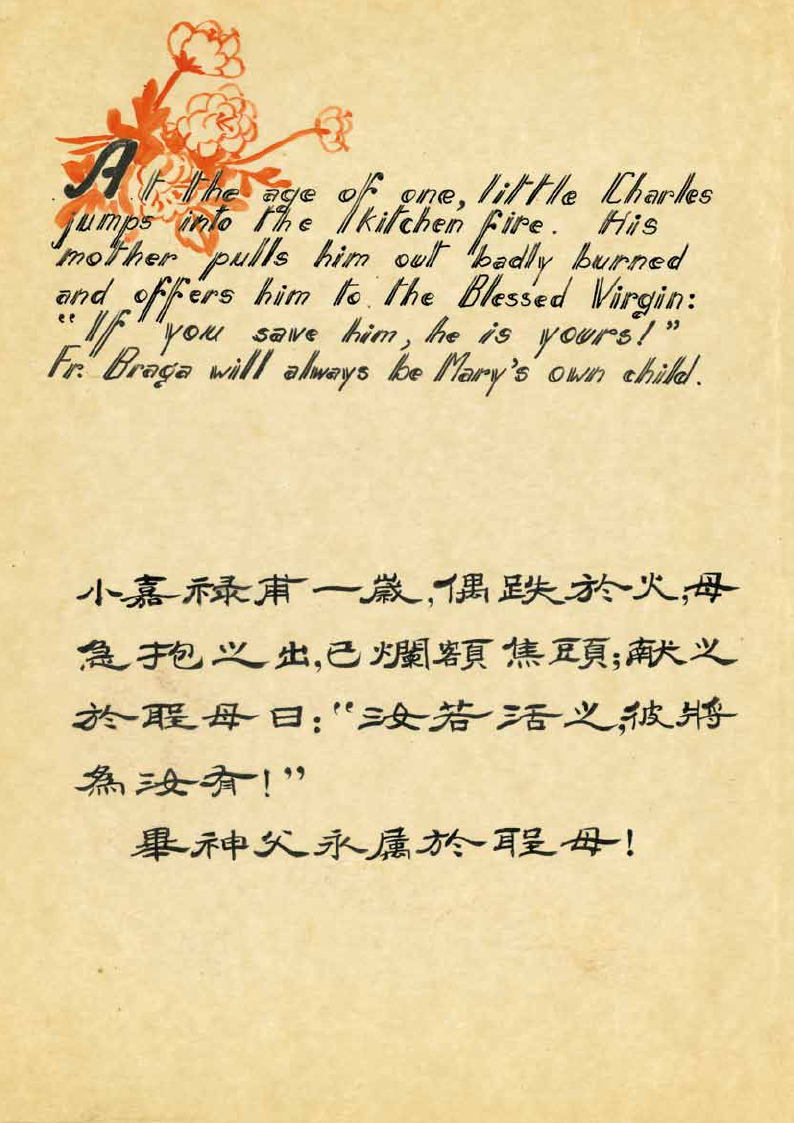 At the age of one, little Charles
jumps into the kitchen fire. His
mother pulls him out badly burned
and offers him to the Blessed Virgin:
"If you save him, he is yours!"
Fr. Braga will always be Mary's own child.
小嘉祿甫一歲,偶跌於火,母
急抱之出,已爛額焦頭;献之
於聖母曰:"汝若活之,彼將
為汝有!"
畢神父永属於聖母!